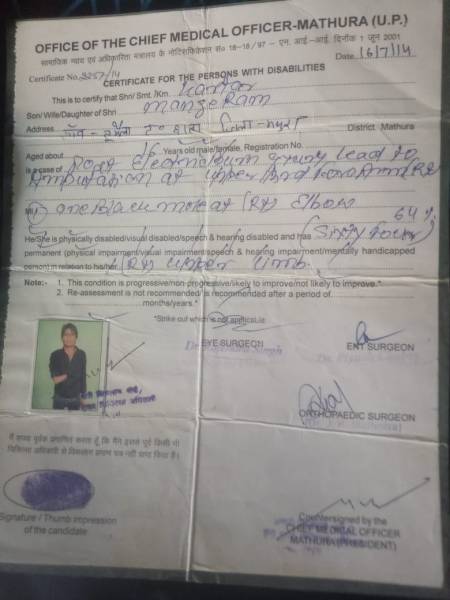 OFFICE OF THE CHIEF MEDICAL OFFICER-MATHURA (U.P.)
सामाजिक न्याय एवं अधिकारिता मन्त्रालय के नोटिफिकेशन सं० 16-18/97 - एन. आई-आई. दिनांक 1 जून 2001
Certificate No. 3257/14 Date 16/7/14
CERTIFICATE FOR THE PERSONS WITH DISABILITIES
This is to certify that Shri/ Smt. /Km.
Son/ Wife/Daughter of Shri Mangeram
Address District Mathura
Aged about Years old male/female, Registration No.
is a case of Post Electrical lead to
Amputation at upper
MI) one Black mole at (Rt) Elbow
64 %
He/She is physically disabled/visual disabled/speech & hearing disabled and has (Sixty four
permanent (physical impairment/visual impairment/speech & hearing impairment/mentally handicapped
person) in relation to his/her (Rt) upper limb.
Note:- 1. This condition is progressive/non-progressive/likely to improve/not likely to improve.*
2. Re-assessment is not recommended/is recommended after a period of
months/years.*
*Strike out which is not applicable
EYE SURGEON
ENT SURGEON
ORTHOPAEDIC SURGEON
मैं शपथ पूर्वक प्रमाणित करता हूँ कि मैंने इससे पूर्व किसी भी
चिकित्सा अधिकारी से विकलांग प्रमाण पत्र नहीं प्राप्त किया है।
Signature / Thumb impression
of the candidate
Countersigned by the
CHIEF MEDICAL OFFICER
MATHURA (PRESIDENT)